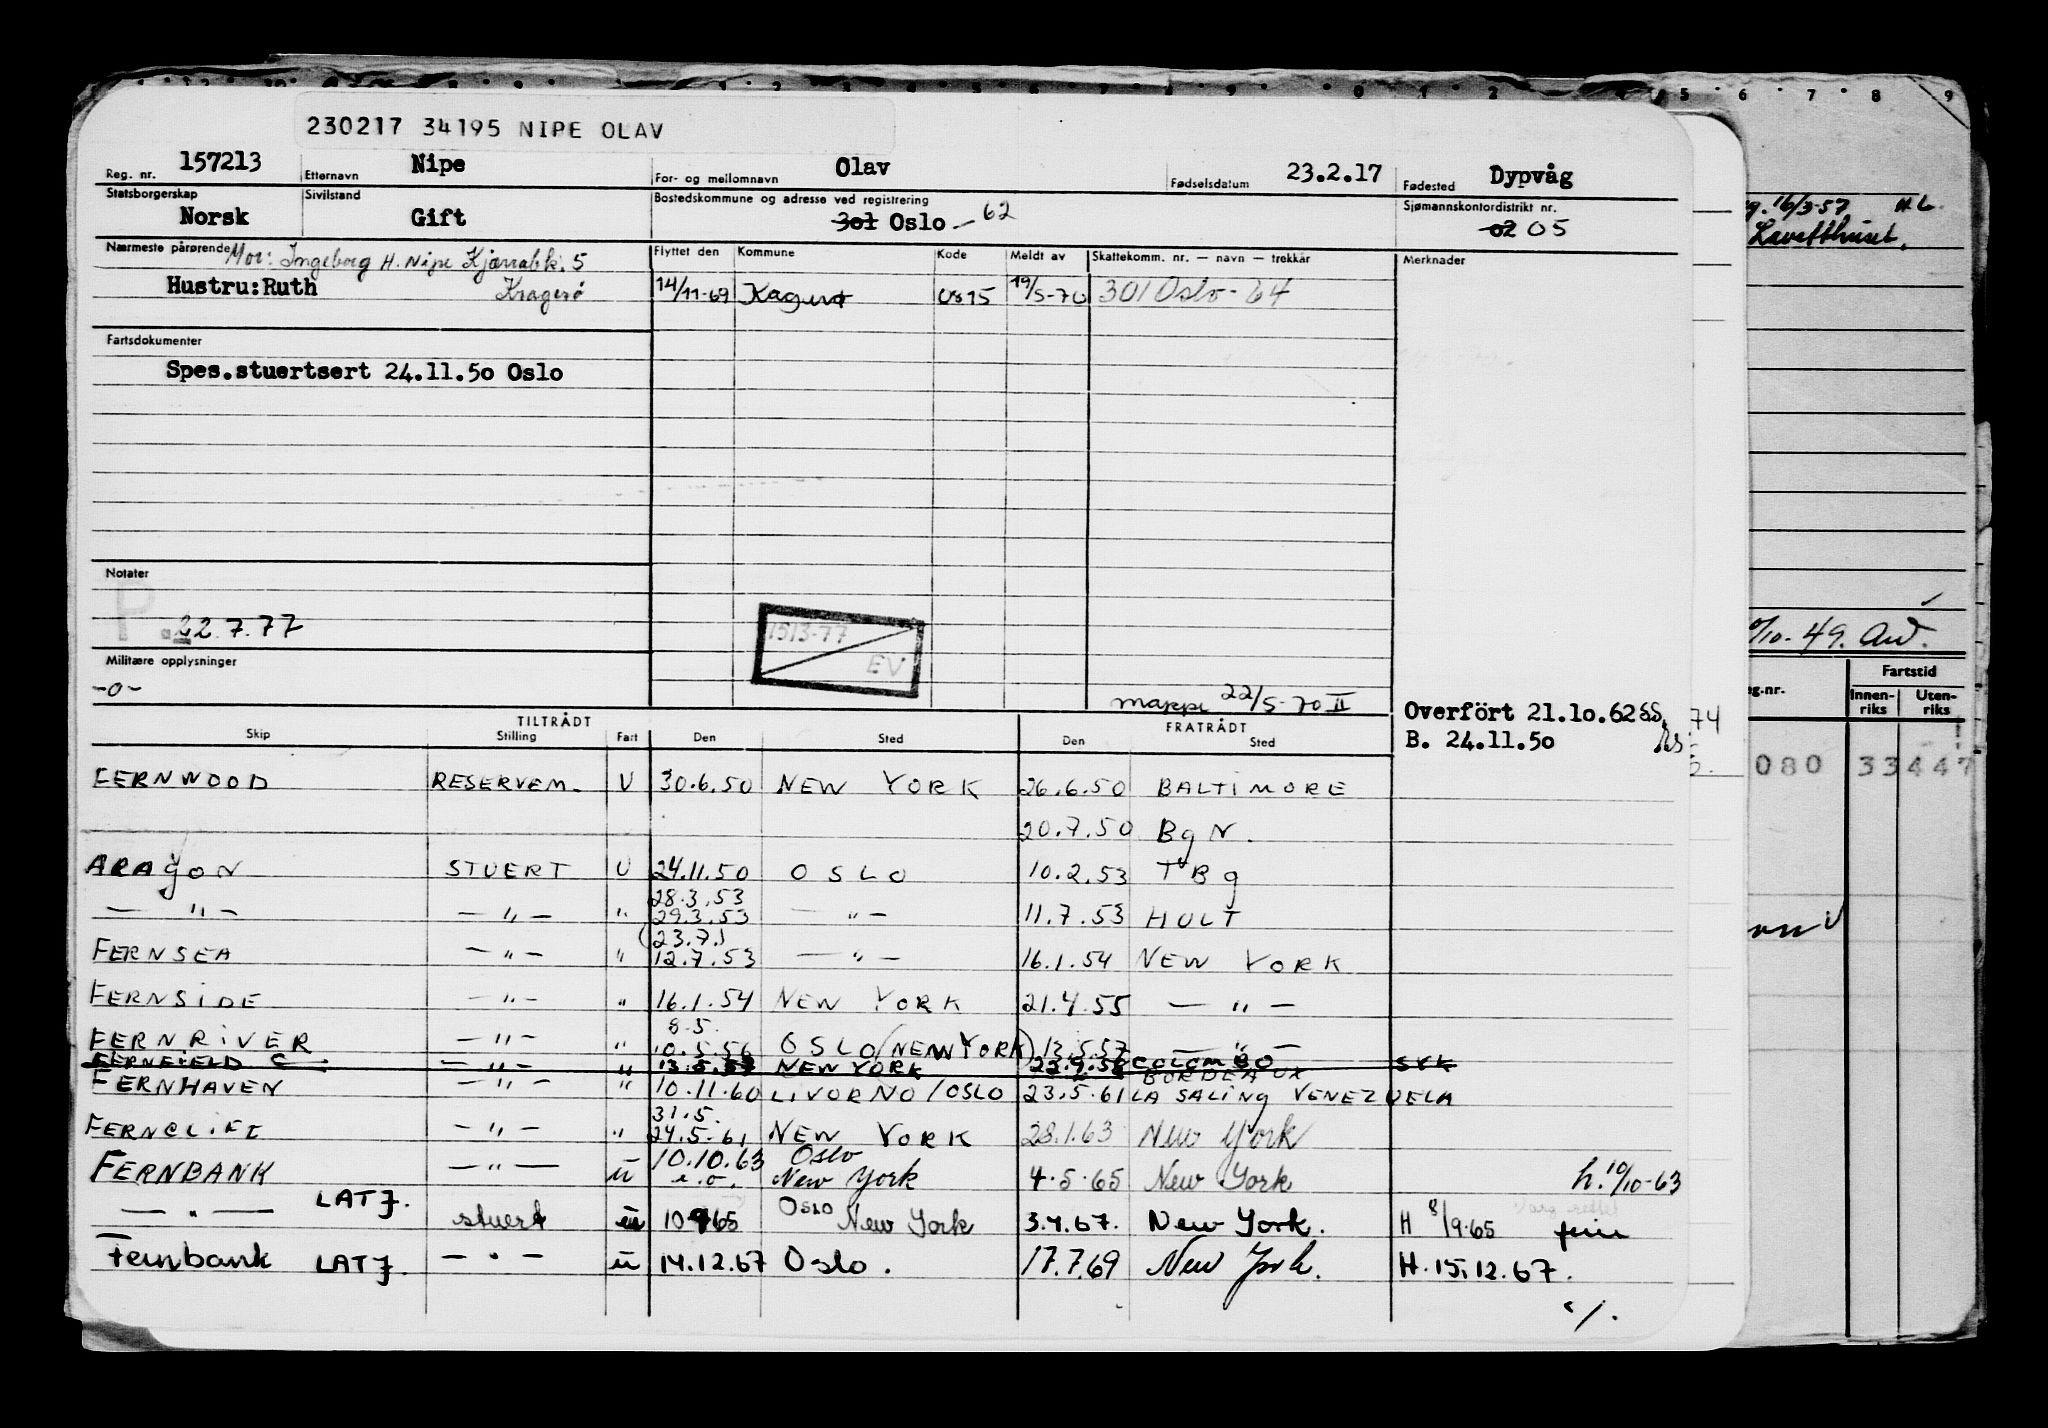 230217 34195 NIPE OLAV
Reg. nr. 157213 Etternavn Nipe For- og mellomnavn Olav Fødselsdatum 23.2.17 Fødested Dypvåg
Statsborgerskap Norsk Sivilstand Gift Bostedskommune og adresse ved registrering 301 Oslo - 62 Sjømannskontordistrikt nr. 02 05
Nærmeste pårørende Mor: Ingeborg H. Nipe 5
Kragerø
Hustru: Ruth
Flyttet den Kommune Kode Meldt av Skattekomm. nr. — navn — trekkår Merknader
14/11-69 19/5-70 301 Oslo - 64
Fartsdokumenter
Spes.stuertsert 24.11.50 Oslo
Notater
P 22.7.77
1513-77
EV
Militære opplysninger
-o-
mappe 22/5-70 II
Overfört 21.10.62
B. 24.11.50
TILTRÅDT FRATRÅDT
Skip Stilling Fart Den Sted Den Sted
FERNWOOD RESERVEM. U 30.6.50 NEW YORK 26.6.50 BALTIMORE
20.7.50 BgN.
ARAGON STUERT U 24.11.50 OSLO 10.2.53 TBg
28.3.53
— " — — " — " 29.3.53 — " — 11.7.53 HOLT
(23.7.)
FERNSEA — " — " 12.7.53 — " — 16.1.54 NEW YORK
FERNSIDE — " — " 16.1.54 NEW YORK 21.4.55 — " —
8.5.
FERNRIVER — " — " 10.5.56 OSLO (NEW YORK) 13.5.57 — " —
FERNFIELD — " — " NEW YORK 22.9.58 COLOMBO SYK
BORDEAUX
FERNHAVEN — " — " 10.11.60 LIVORNO/OSLO 23.5.61 LA SALING VENEZUELA
31.5.
FERNCLIFF — " — " 24.5.61 NEW YORK 28.1.63 New York
FERNBANK — " — u 10.10.63 Oslo
New York 4.5.65 New York h. 10/10-63
— " — LATJ. stuert u 10965 Oslo New York 3.4.67. New York. H 8/9.65
Fernbank LATJ. — " — u 14.12.67 Oslo. 17.7.69 New York. H. 15.12.67.
·/.
16/3-57
/10-49.
Fartstid
Innenriks Utenriks
74
080 33447